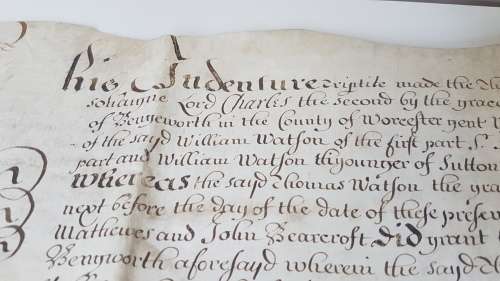 This Indenture Triptite made the
soħaigne Lord Charles the second by the grace
of Bengeworth in the County of Worcester gent
of the sayd William Watson of the first part Sr
part and William Watson the younger of Sutton
whereas the sayd Thomas Watson the
next before the day of the date of these
Mathewes and John Bearcroft did grant
Bengworth aforesayd wherein the sayd